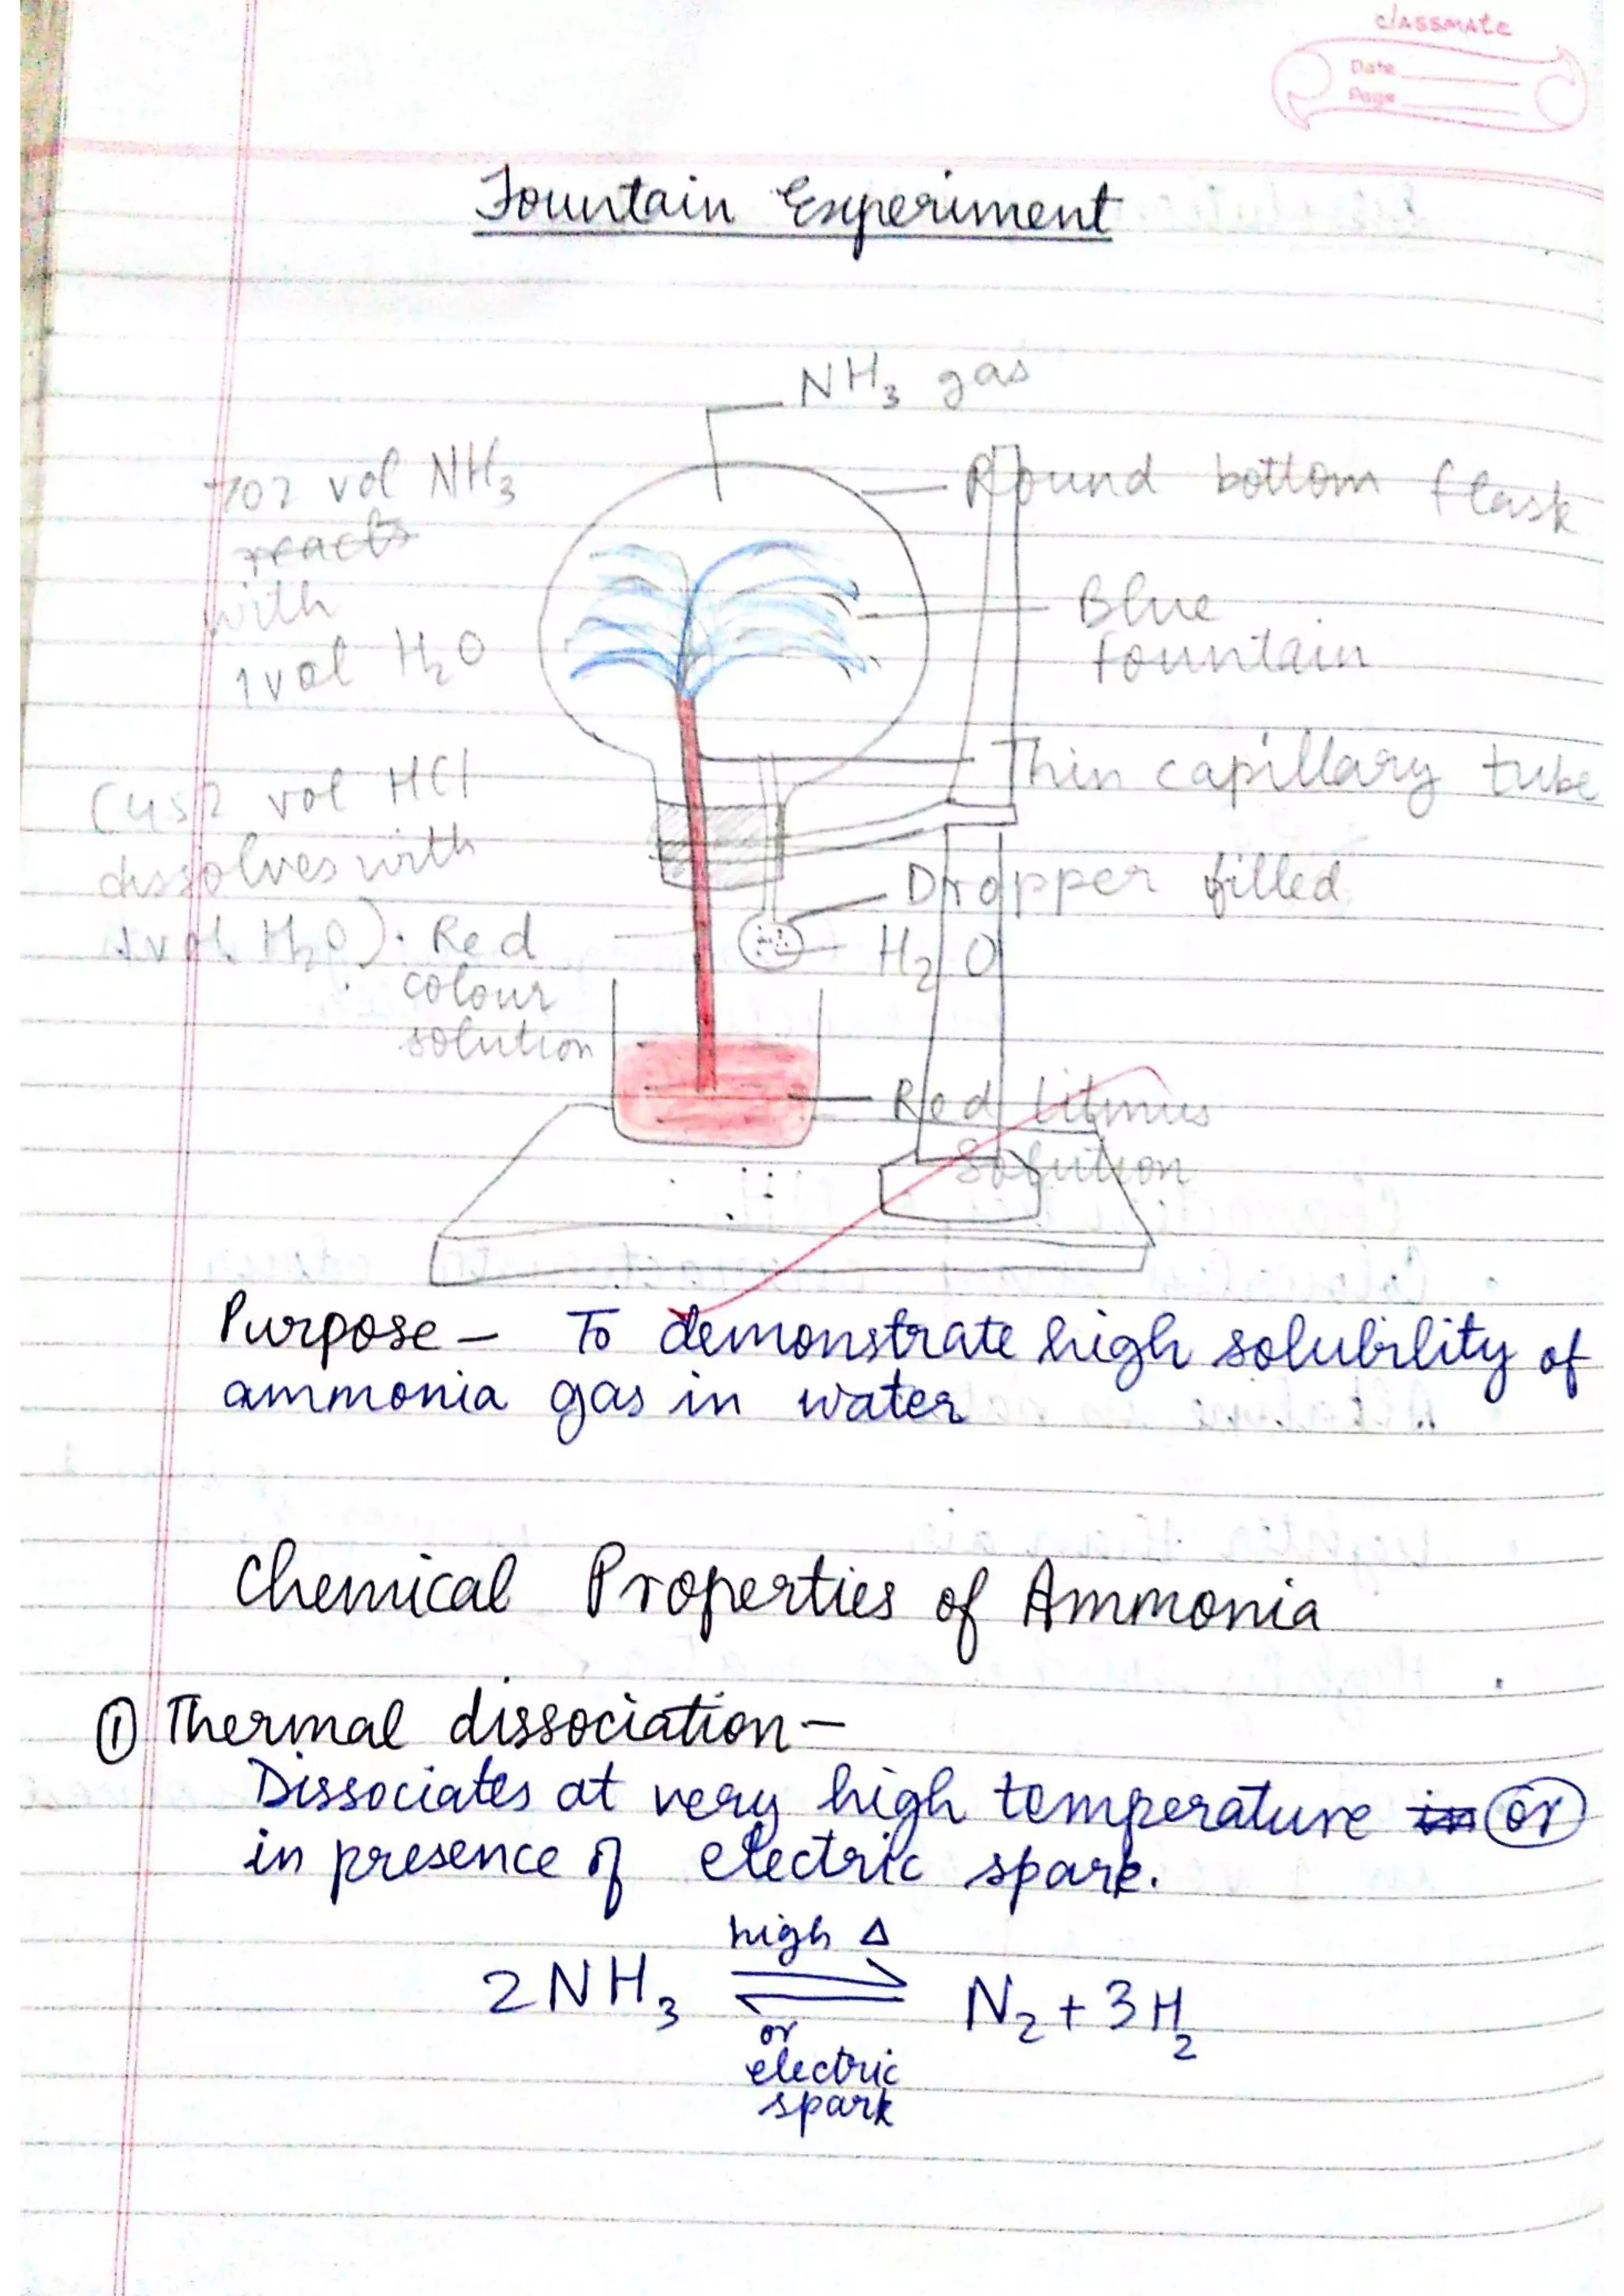 classmate
Date
Page
Fountain Experiment
NH3 gas
702 vol NH3
reacts
with
1 vol H2O
Round bottom flask
Blue
fountain
Thin capillary tube
(452 vol HCl
dissolves with
1 vol. H2O).
Dropper filled
H2O
Red
colour
solution
Red litmus
Solution
Purpose – To demonstrate high solubility of
ammonia gas in water
Chemical Properties of Ammonia
① Thermal dissociation –
Dissociates at very high temperature in or
in presence of electric spark.
high Δ
2NH3 ⇌ N2 + 3H2
or
electric
spark